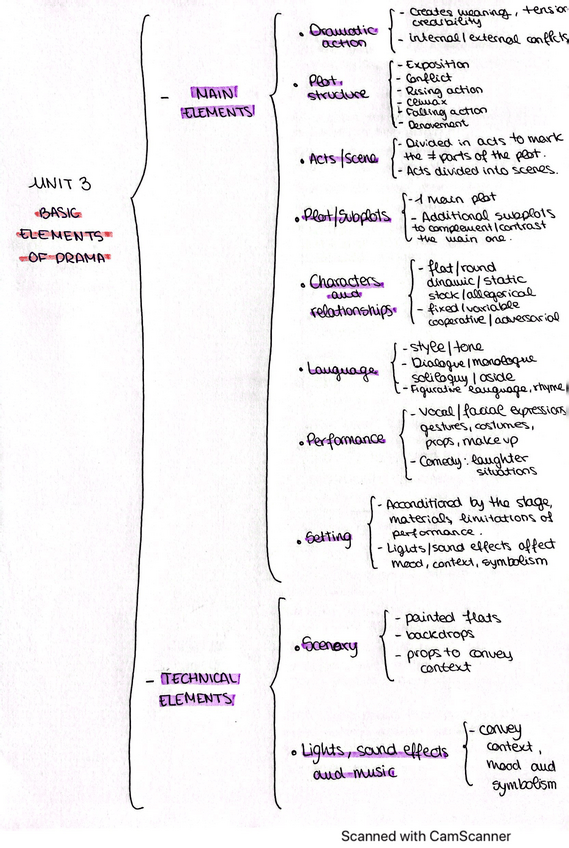 UNIT 3
BASIC
ELEMENTS
OF DRAMA
- MAIN
ELEMENTS
• Dramatic
action
- Creates meaning, tension
credibility
- internal/external conflicts
• Plot
structure
- Exposition
- Conflict
- Rising action
- Climax
- Falling action
- Denovement
• Acts/Scene
- Divided in acts to mark
the ≠ parts of the plot.
- Acts divided into scenes.
• Plot/Subplots
- 1 main plot
- Additional subplots
to complement/contrast
the main one.
• Characters
and
relationships
- flat/round
dinamic/static
stock/allegorical
- fixed/variable
cooperative/adversarial
• Language
- style/tone
- Dialogue/monologue
soliloquy/aside
- Figurative language, rhyme
• Performance
- Vocal/facial expressions
gestures, costumes,
props, make up
- Comedy: laughter
situations
• Setting
- Aconditioned by the stage,
materials, limitations of
performance.
- Lights/sound effects affect
mood, context, symbolism
- TECHNICAL
ELEMENTS
• Scenery
- painted flats
- backdrops
- props to convey
context
• Lights, sound effects
and music
- convey
context,
mood and
symbolism
Scanned with CamScanner